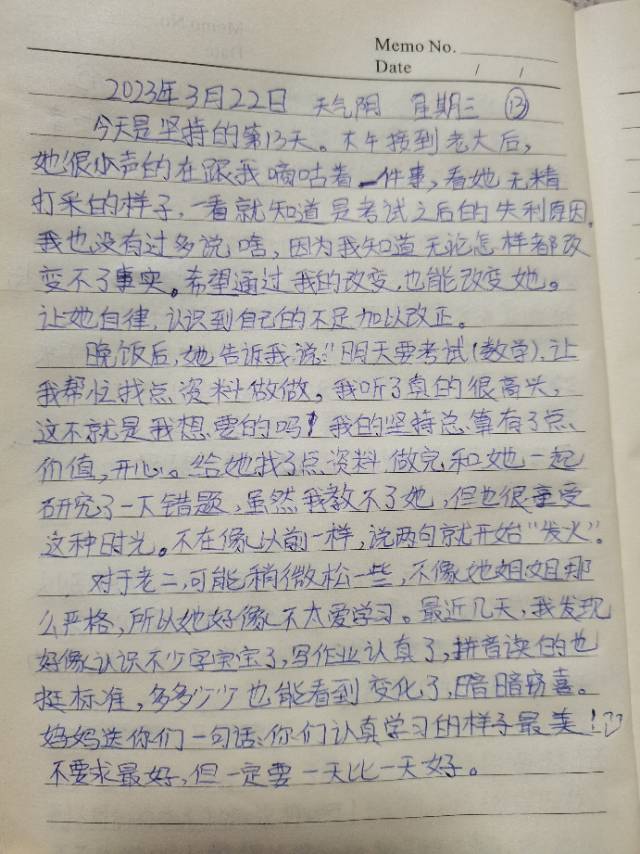 Memo No.
Date / /
2023年3月22日 天气阴 星期三 ⑬
今天是坚持的第13天。下午接到老大后,
她很小声的在跟我嘀咕着一件事,看她无精
打采的样子,一看就知道是考试之后的失利原因。
我也没有过多说啥,因为我知道无论怎样都改
变不了事实。希望通过我的改变,也能改变她。
让她自律,认识到自己的不足加以改正。
晚饭后,她告诉我说:"明天要考试(数学),让
我帮忙找点资料做做,我听了真的很高兴,
这不就是我想要的吗!我的坚持总算有了点
价值,开心。给她找了点资料做完和她一起
研究了一下错题,虽然我教不了她,但也很享受
这种时光。不在像以前一样,说两句就开始"发火"。
对于老二,可能稍微松一些,不像她姐姐那
么严格,所以她好像不太爱学习。最近几天,我发现
好像认识不少字宝宝了,写作业认真了,拼音读的也
挺标准,多多少少也能看到变化了,暗暗窃喜。
妈妈送你们一句话:你们认真学习的样子最美!
不要求最好,但一定要一天比一天好。